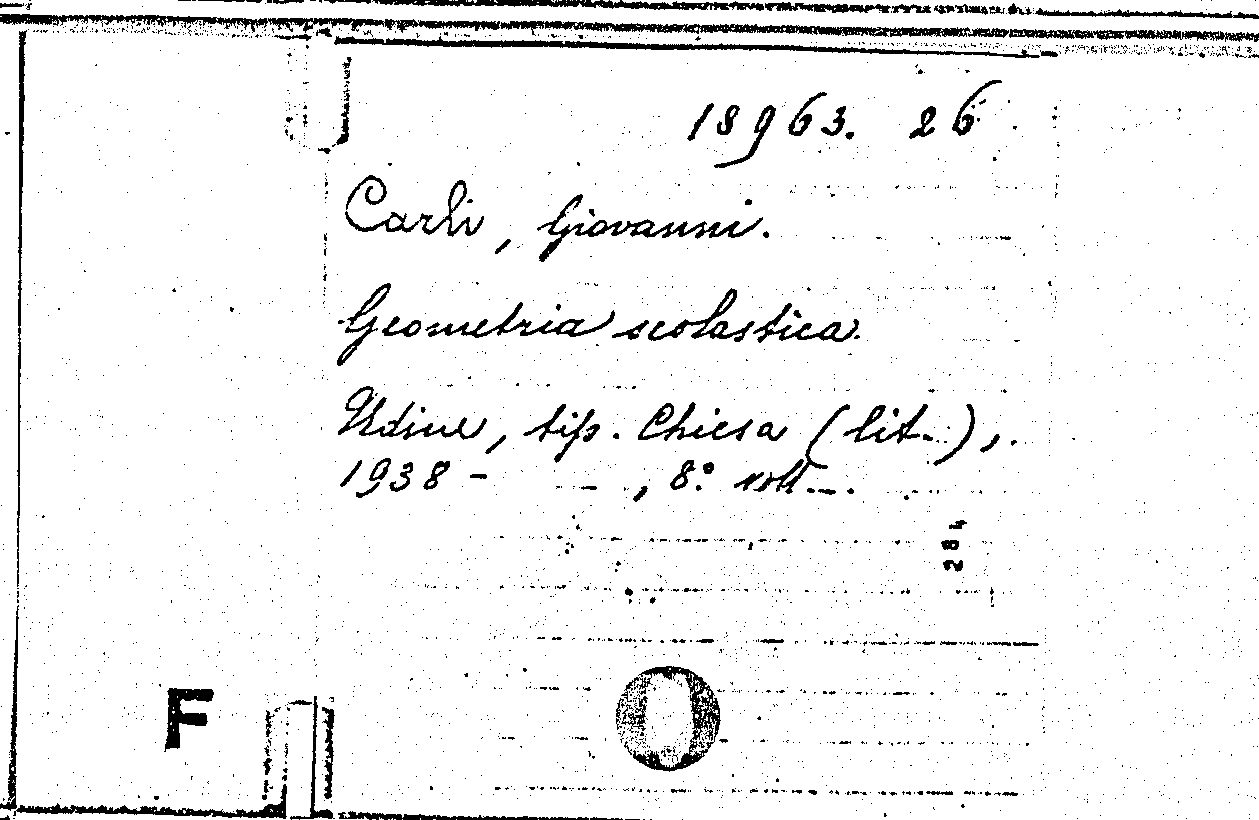 18963. 26
Carli, Giovanni.
Geometria scolastica.
Udine, tip. Chiesa (lit.),
1938 - , 8.° voll.
284
F